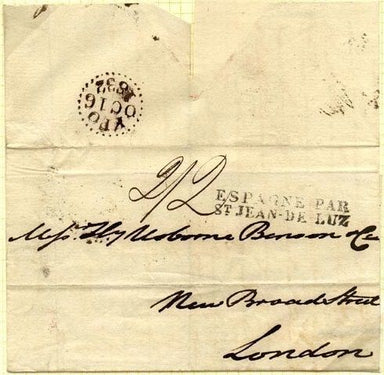 FPO
OC 16
1832
2/2
ESPAGNE PAR
ST JEAN-DE LUZ
Messrs Hy Usborne Benson & Co
New Broad Street
London